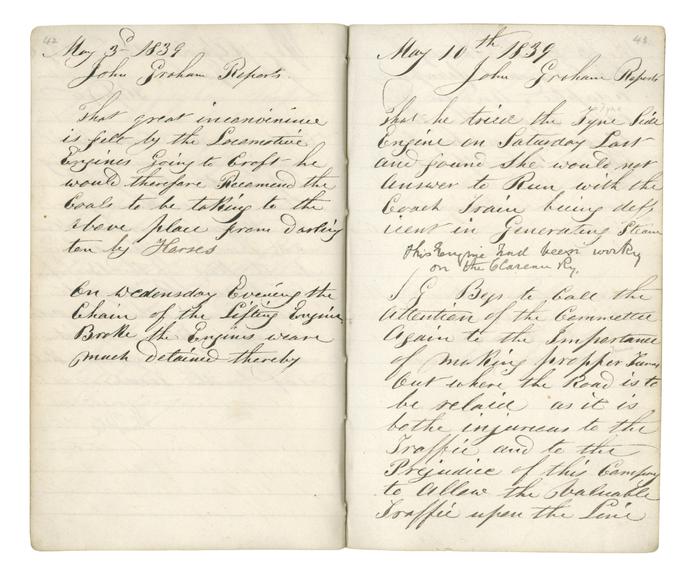 42
May 3d 1839
John Graham Reports
That great inconvinince
is felt by the Locomotive
Engines Going to Croft he
would therefore Recomend the
Coals to be taking to the
above place from Darling
ton by Horses
On Wednesday Evening the
Chain of the Lifting Engine
Broke the Engines weare
much detained thereby
43
May 10th 1839
John Graham Reports
That he tried the Tyne Side
Engine on Saturday Last
and found She would not
answer to Run with the
Coach Train being defi
cient in Generating Steam
this Engine had been working
on the Clarence Ry.
J G Begs to Call the
attention of the Committee
Again to the Importance
of making propper
Out where the Road is to
be relaid as it is
bothe injurious to the
Traffic and to the
Prejudice of this Company
to Allow the Valuable
Traffic upon the Line